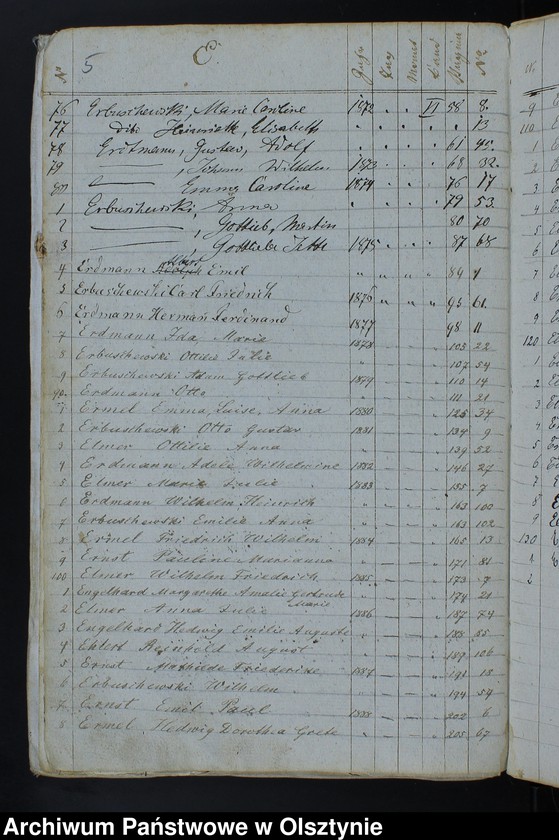 5 E.
No Jahr Tag Monat Band Pagina No
76 Erbuschewski, Marie Caroline 1872 " " II 58 8.
77 dito Heinriette, Elisabeth " " " " " 13
78 Erdtmann, Gustav, Adolf " " " " 61 40.
79 " , Johann Wilhelm 1873 " " " 68 32.
80 " Emma Caroline 1874 " " " 76 17
1 Erbuschewski, Anna " " " " 79 53
2 " , Gottlieb, Martin 80 70
3 " , Gottliebe 1875 " " " 87 68
4 Erdmann Albert Emil " " " " 89 7
5 Erbuschewski Carl Friedrich 1876 " " " 95 61.
6 Erdmann Herman Ferdinand 1877 98 11
7 Erdmann Ida, Maria 1878 105 22
8 Erbuschewski Ottilie Julie 107 54
9 Erbuschewski Adam Gottlieb 1879 110 14
90. Erdmann Otto " 111 21
1 Ermel Emma, Luise, Anna 1880 125 37
2 Erbuschewski Otto Gustav 1881 134 9
3 Elmer Ottilie Anna " 139 52
4 Erdmann Adele Wilhelmine 1882 146 27
5 Elmer Maria Julie 1883 155 7
6 Erdmann Wilhelm Heinrich " 163 100
7 Erbuschewski Emilie Anna " 163 102
8 Ermel Friedrich Wilhelm 1884 165 13
9 Ernst Pauline Marianna " 171 81
100 Elmer Wilhelm Friedrich 1885 173 9
1 Engelhard Margarethe Amalie Gertrude Marie " 174 21
2 Elmer Anna Julie 1886 187 74
3 Engelhard Hedwig Emilie Auguste " 188 55
4 Ehlert Reinhold August " 189 106
5 Ernst Mathilde Friederike 1887 191 18
6 Erbuschewski Wilhelm " 194 59
7 Ernst Emil Paul 1888 202 6
8 Ermel Hedwig Dorothea Grete " 205 67
Archiwum Państwowe w Olsztynie